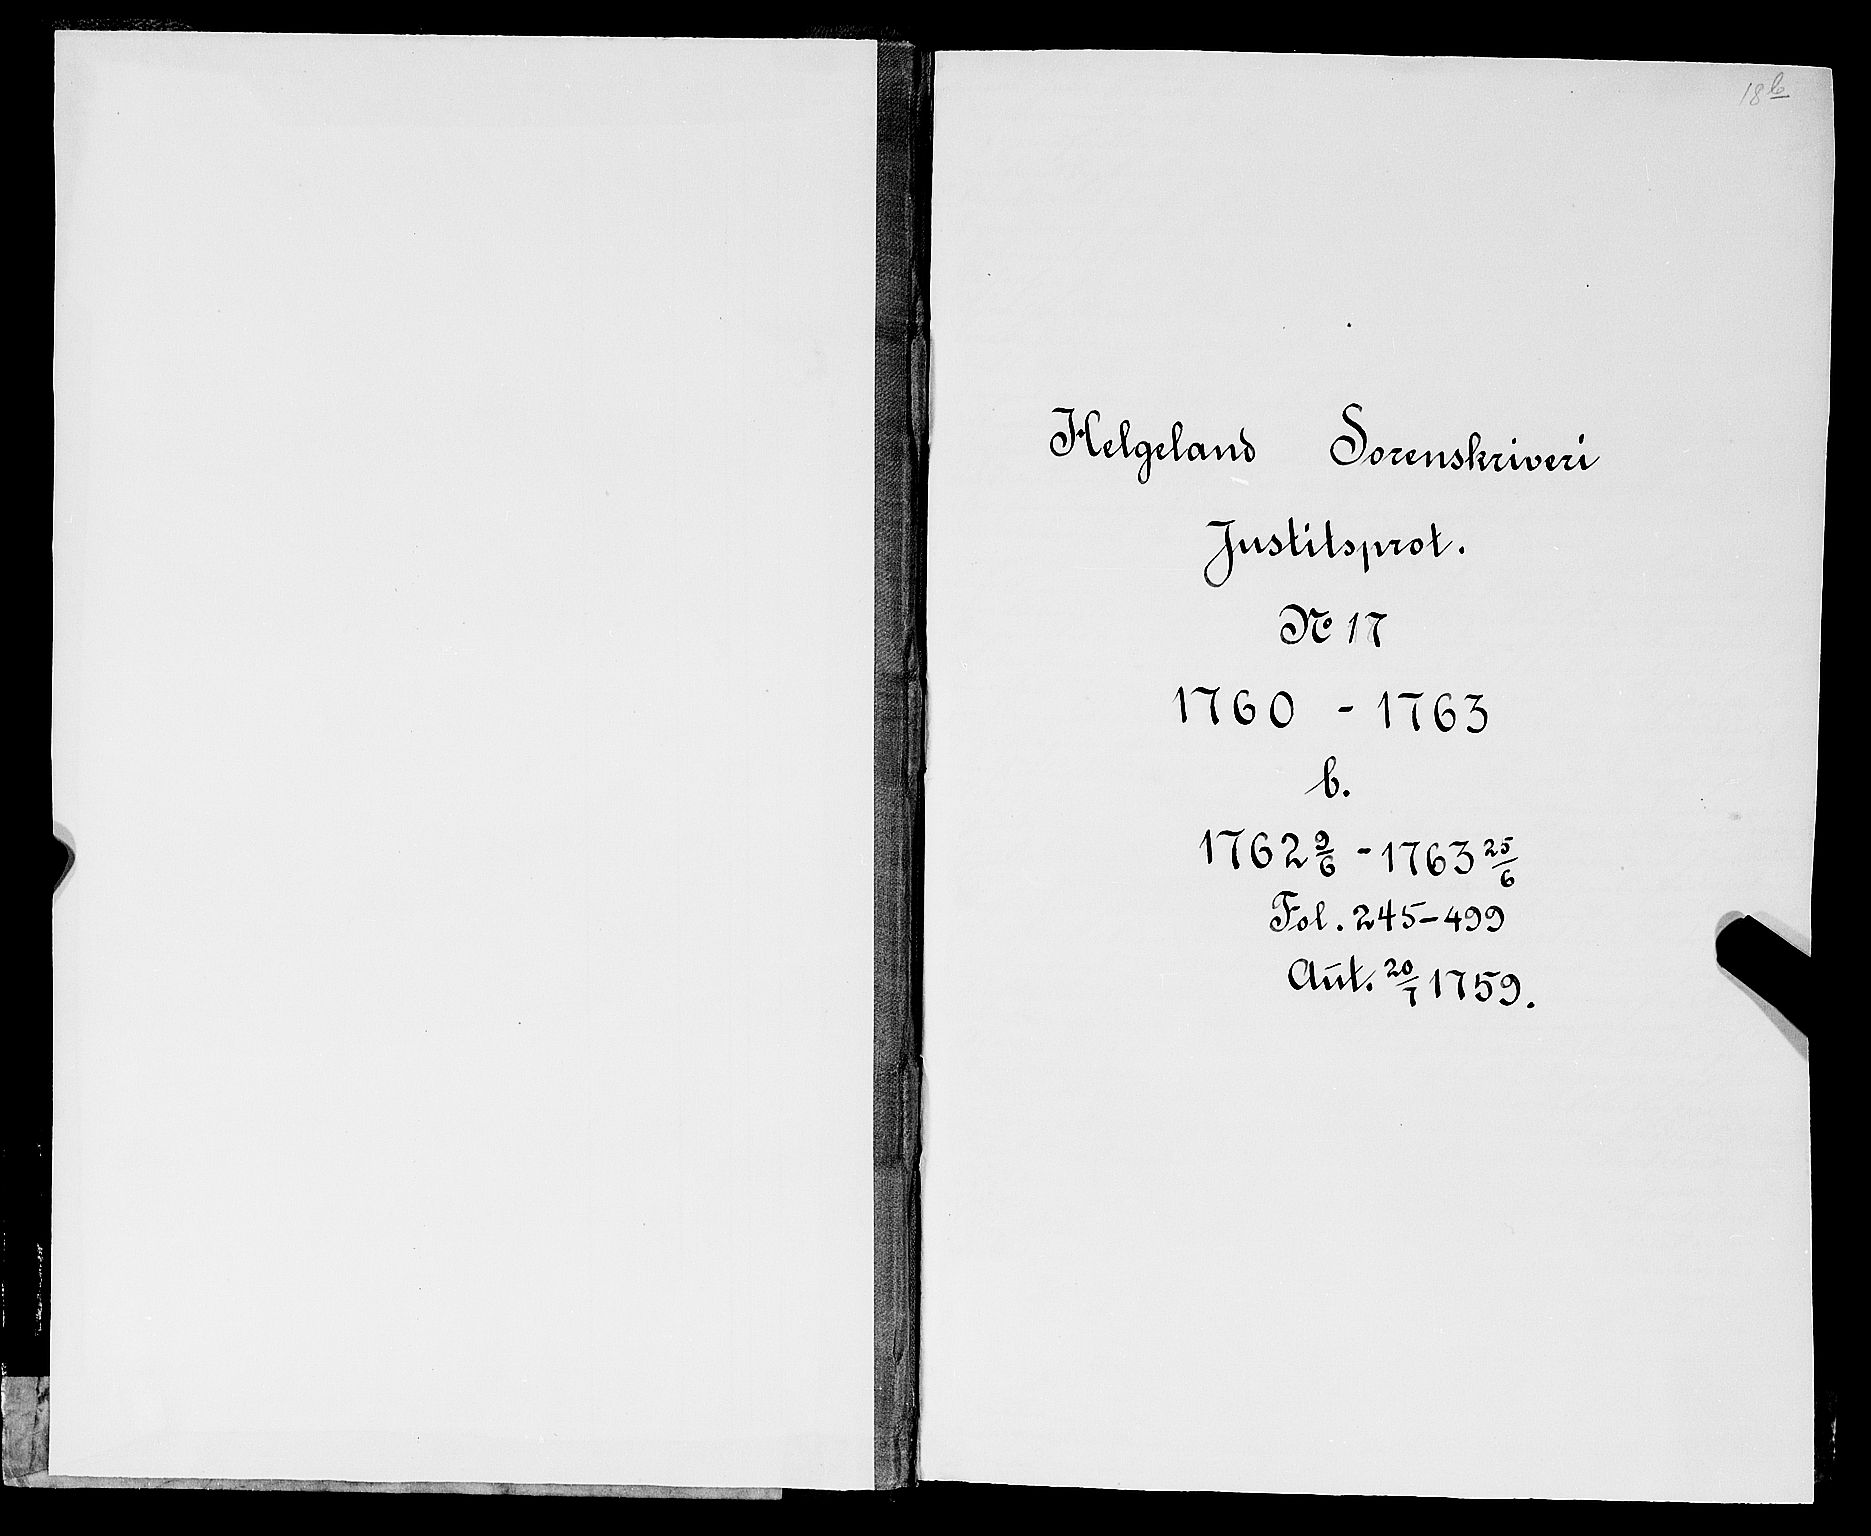 18b
Helgeland Sorenskriveri
Justitsprot.
No 17
1760 - 1763
b.
1762 9/6 - 1763 25/6
Fol. 245-499
Aut. 20/7 1759.